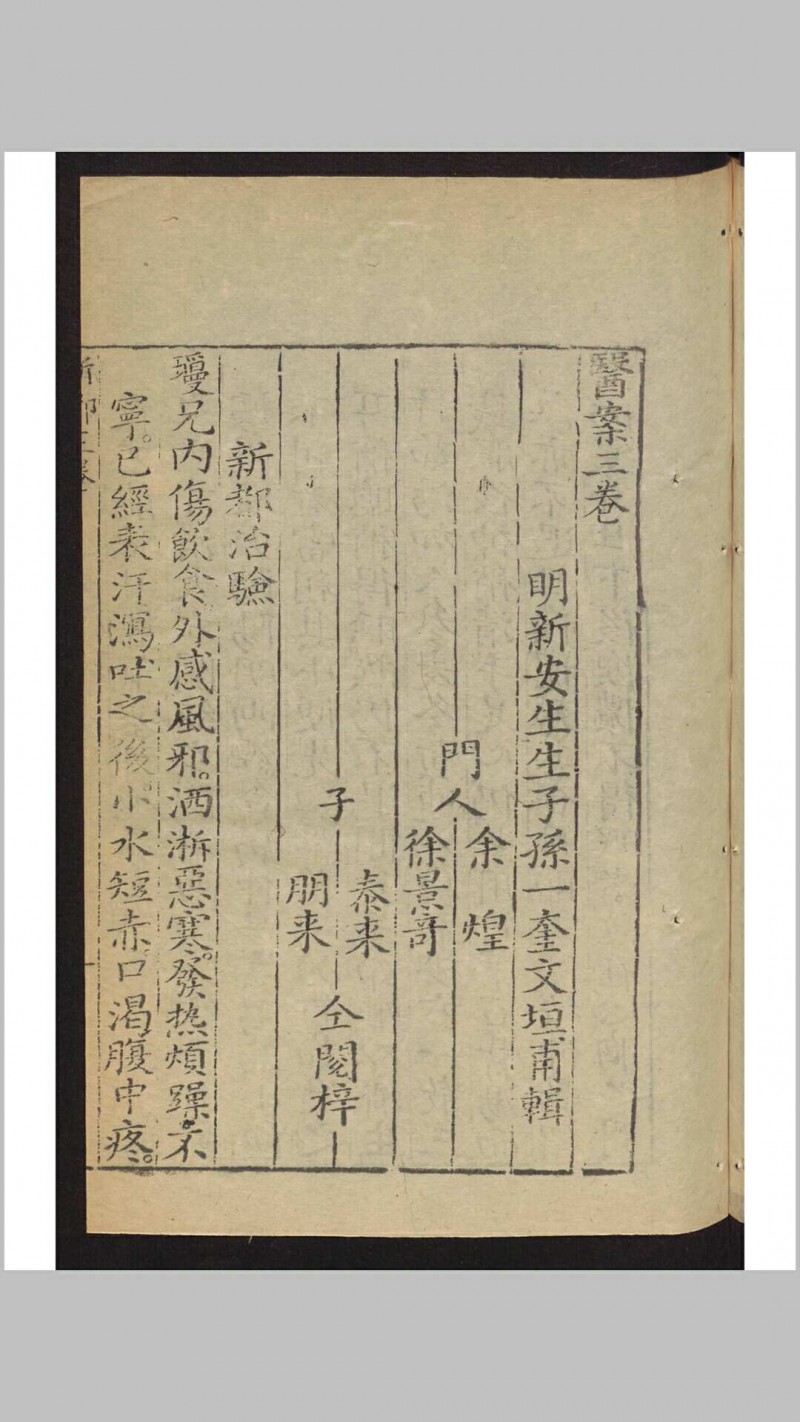 醫案三卷
明新安生生子孫一奎文垣甫輯
門人
余煌
徐景奇
子
泰来
朋来
仝閱梓
新都治驗
瓊兄内傷飲食外感風邪。洒淅惡寒。發热煩躁。不
寧。已經表汗瀉吐之後小水短赤口渴腹中疼。